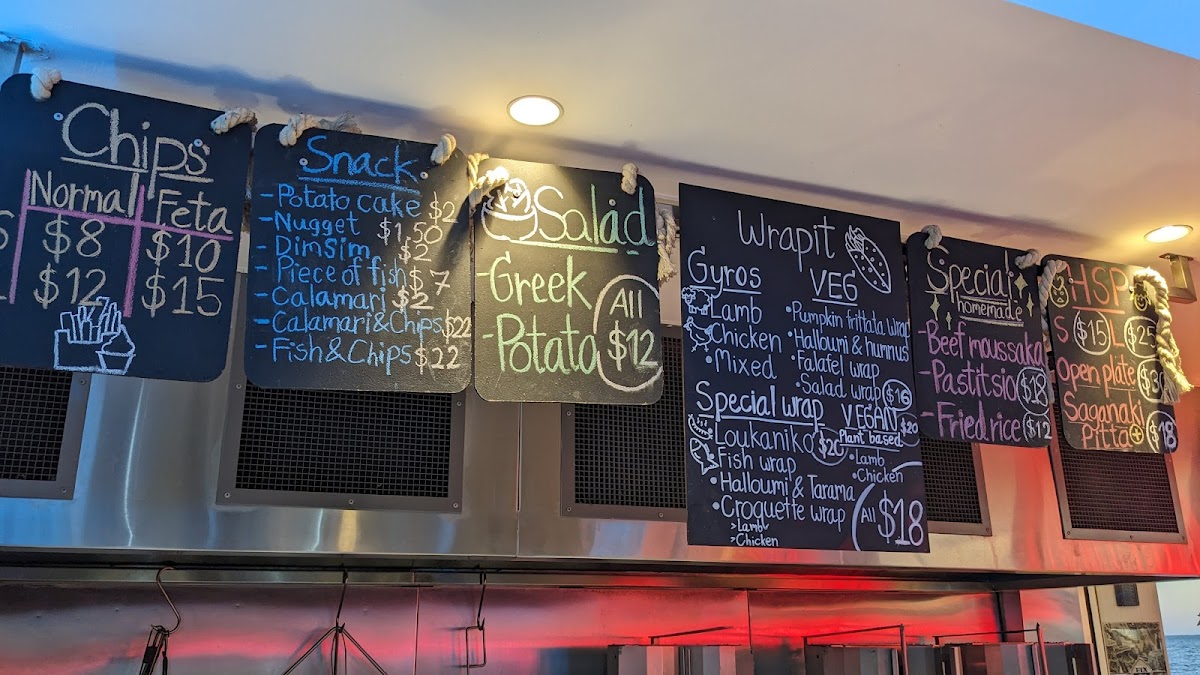 Chips
Normal Feta
S $8 $10
$12 $15
Snack
- Potato cake $2
- Nugget $1,50
- DimSim $2
- Piece of fish $7
- Calamari $2
- Calamari & Chips $22
- Fish & Chips $22
Salad
- Greek
- Potato
All $12
Wrapit
Gyros
Lamb
Chicken
• Mixed
VEG
• Pumpkin frittata wrap
• Halloumi & hummus
• Falafel wrap
• Salad wrap $16
Special wrap
Loukaniko $20
Fish wrap
• Halloumi & Tarama
• Croquette wrap
> Lamb
> Chicken
VEGAN $20
Plant based
• Lamb
• Chicken
All $18
Special
homemade
- Beef moussaka
- Pastitsio $18
- Fried rice $12
HSP
S $15 L $25
Open plate $30
Saganaki
Pitta + $18